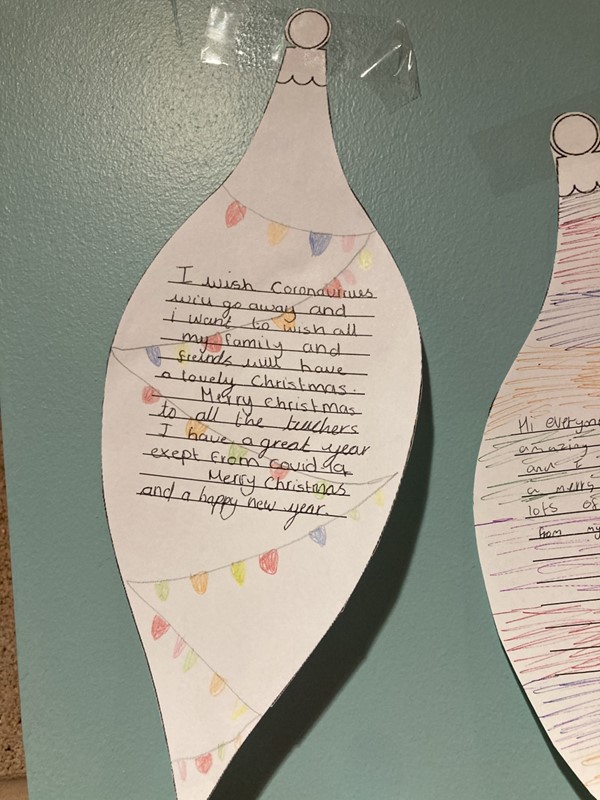 I wish Coronaviruses
will go away and
i want to wish all
my family and
freinds will have
a lovely Christmas.
Merry Christmas
to all the teachers
I have a great year
exept From covid 19
Merry Christmas
and a happy new year.
Hi everyone
amazing
and I
a merry
lots of
from my